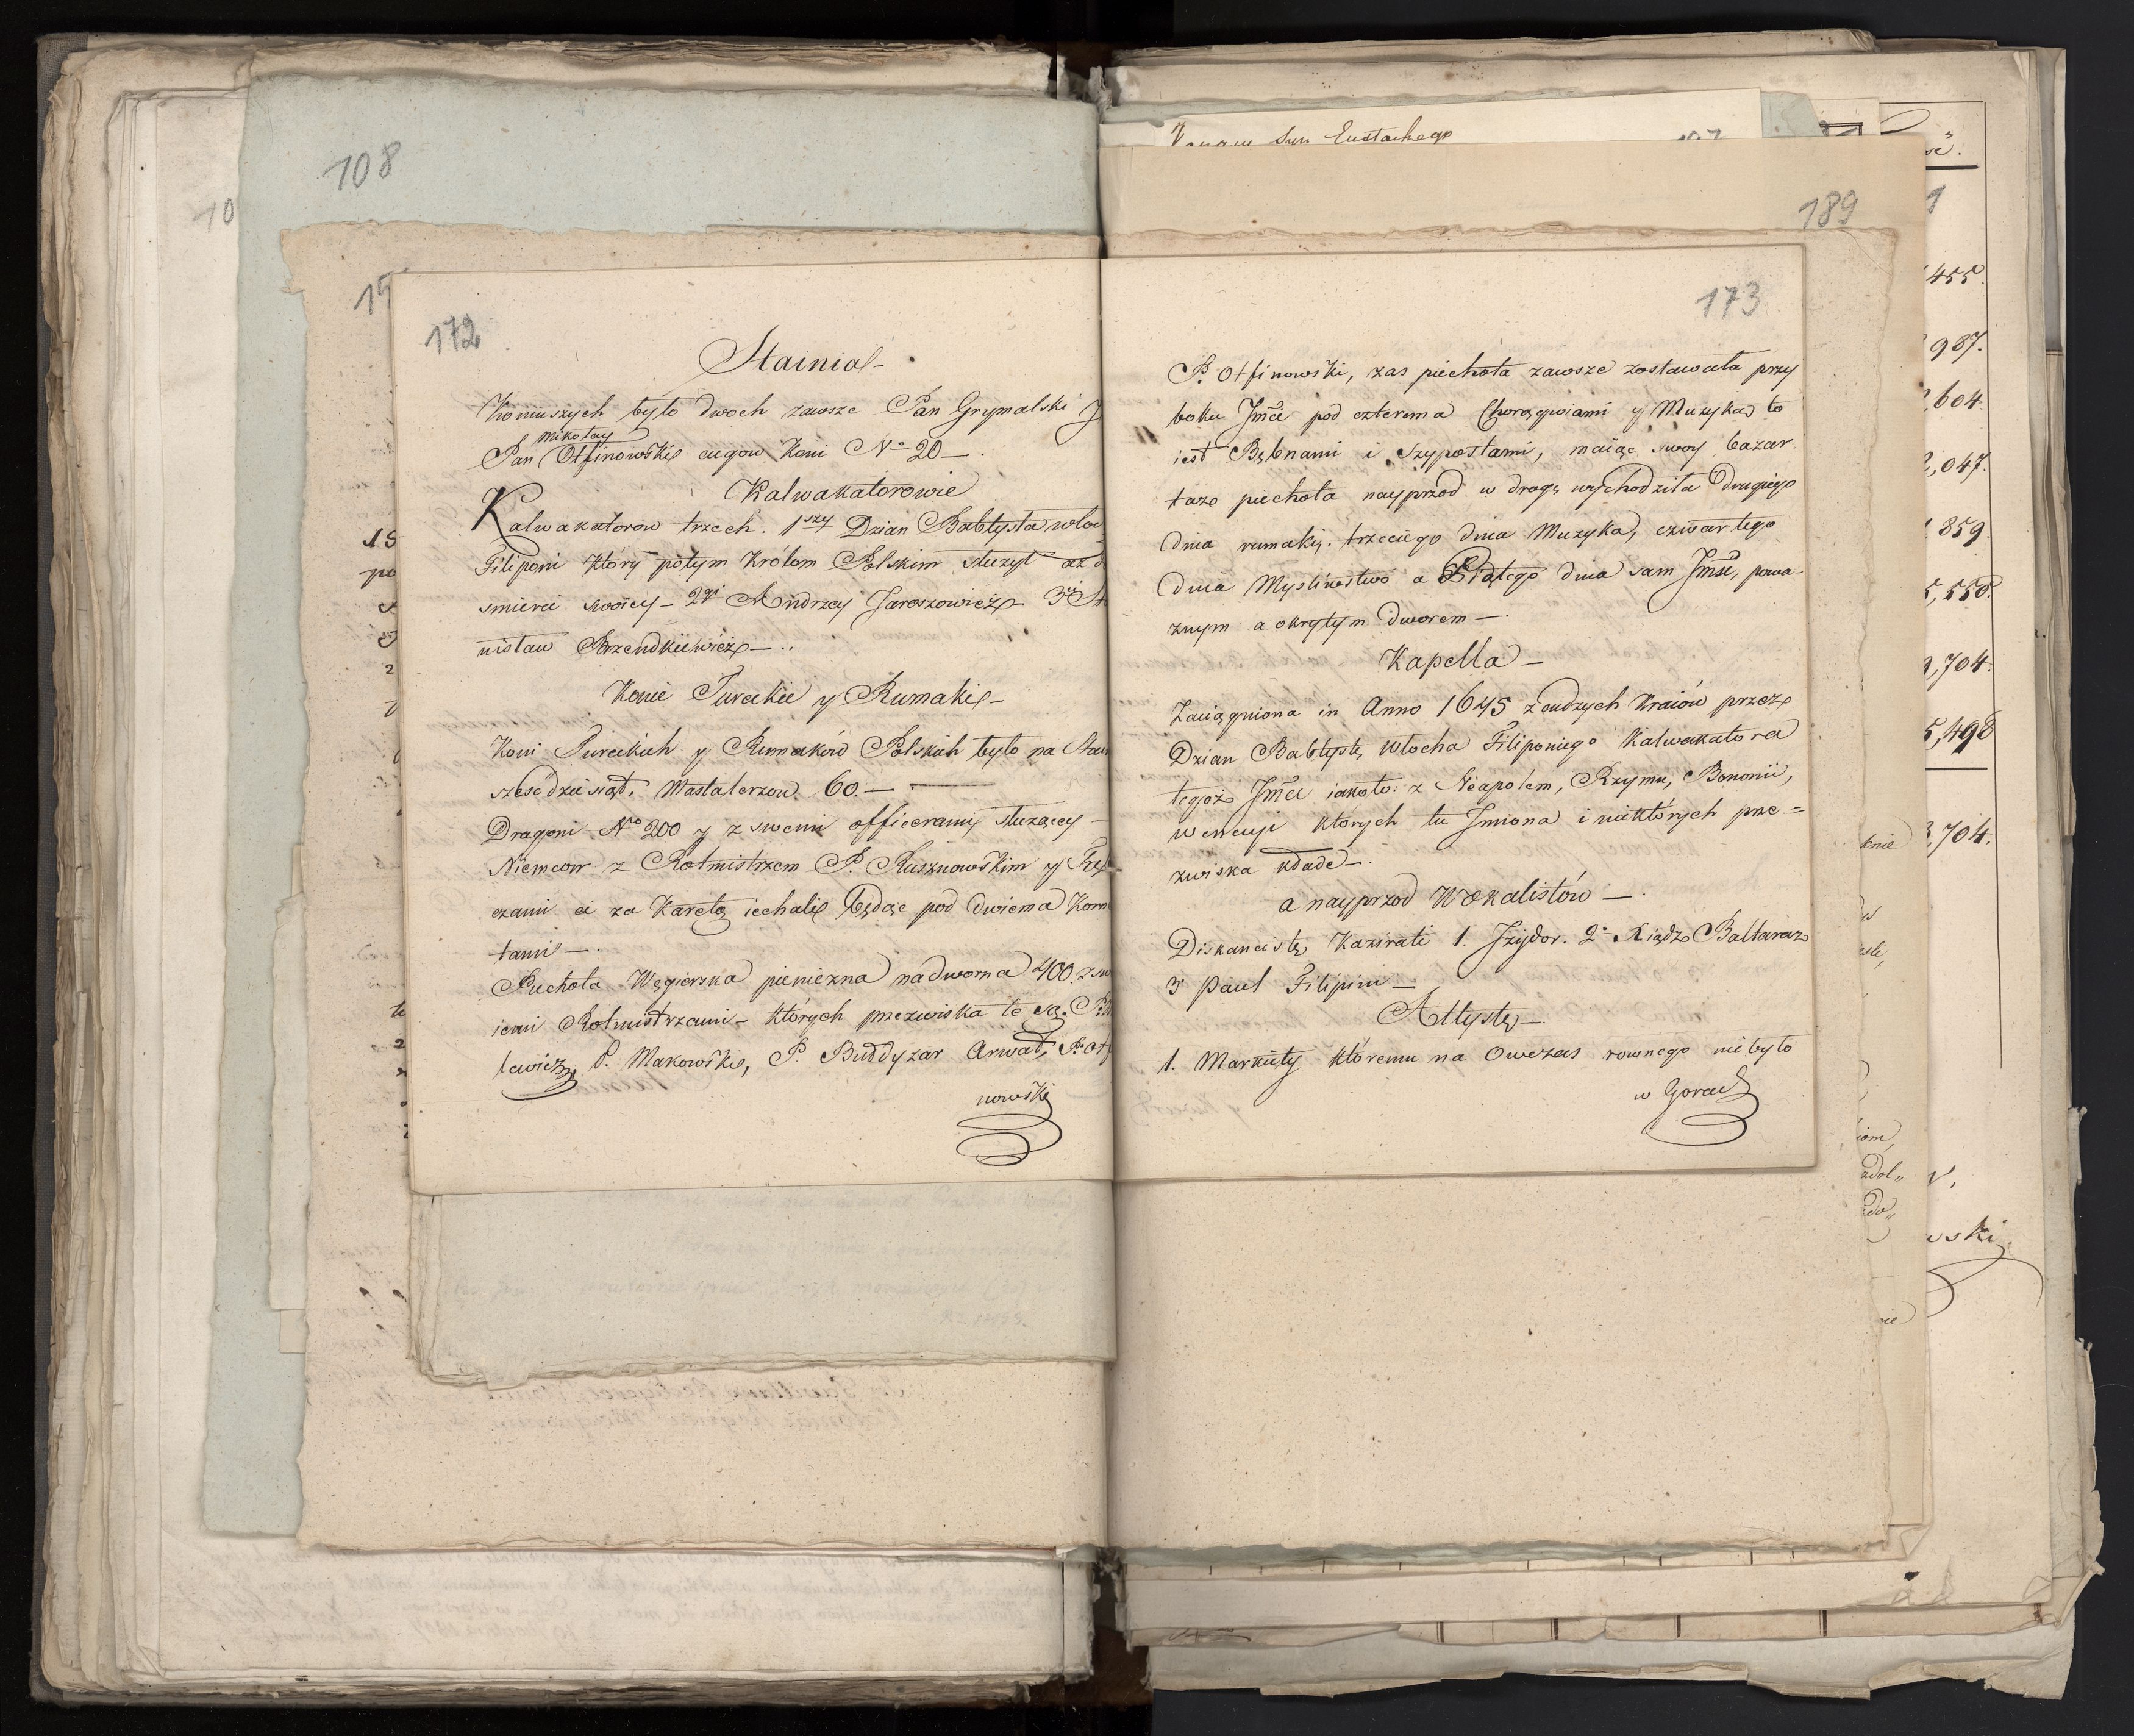 108
10
172
Stainia
Koniuszych było dwoch zawsze Pan Grymalski
Mikołay
Pan Otfinowski cugow Koni No 20 —.
Kalwakatorowie
Kalwakatorow trzech. 1szy Dzian Babtysta wło
Filiponi który potym Krolom Polskim słuzył az d
smierci swoiey — 2gi Andrzey Jaroszowicz 3ci
nisław Brzendkiewicz —
Konie Tureckie y Rumaki —
Koni Tureckich y Rumaków Polskich było na
szescdziesiąt. Mastalerzow. 60. —
Dragoni No 200 y z swemi officerami słuzący —
Niemcow z Rotmistrzem P. Rusznowskim y
czami ci za Karetą iechali będąc pod dwiema Korn
tami —.
Piechota Węgierska pieniezna nadworna 400. z sw
iemi Rotmistrzami — których przezwiska te są. P.
lawicz, P. Makowski, P. Buddyzar Arwat, P. Otf
nowski
Eustachego
189
173
P. Otfinowski, zas piechota zawsze zostawała przy
boku Jmći pod czterema Chorągwiami y Muzyką to
iest Bębnami i Szyposzami, maiąc swoy bazar
taze piechota nayprzod w drogę wychodziła Drugiego
dnia rumaki. trzeciego dnia Muzyka, czwartego
dnia Myslistwo a Piątego dnia sam Jmść, powa-
znym a okrytym dworem —.
Kapella —
Zaciągniona in Anno 1645 z cudzych Kraiów przez
Dzian Babtystę Włocha Filiponiego Kalwakatora
tegoż Jmći iakoto: z Neapolem, Rzymu, Bononii,
Wenecyi których tu Jmiona i niektórych prze=
zwiska kłade —.
a nayprzod Wokalistów —.
Diskancistę Kazirati 1. Jzijdor. 2. Xiądz Baltaraz
3 Paul Filipini —
Altystę —.
1. Markiety któremu na Owczas rownego niebyło
w Gorach
455
987.
604.
,047.
859.
5,550.
,704.
5,498
,704.
wski